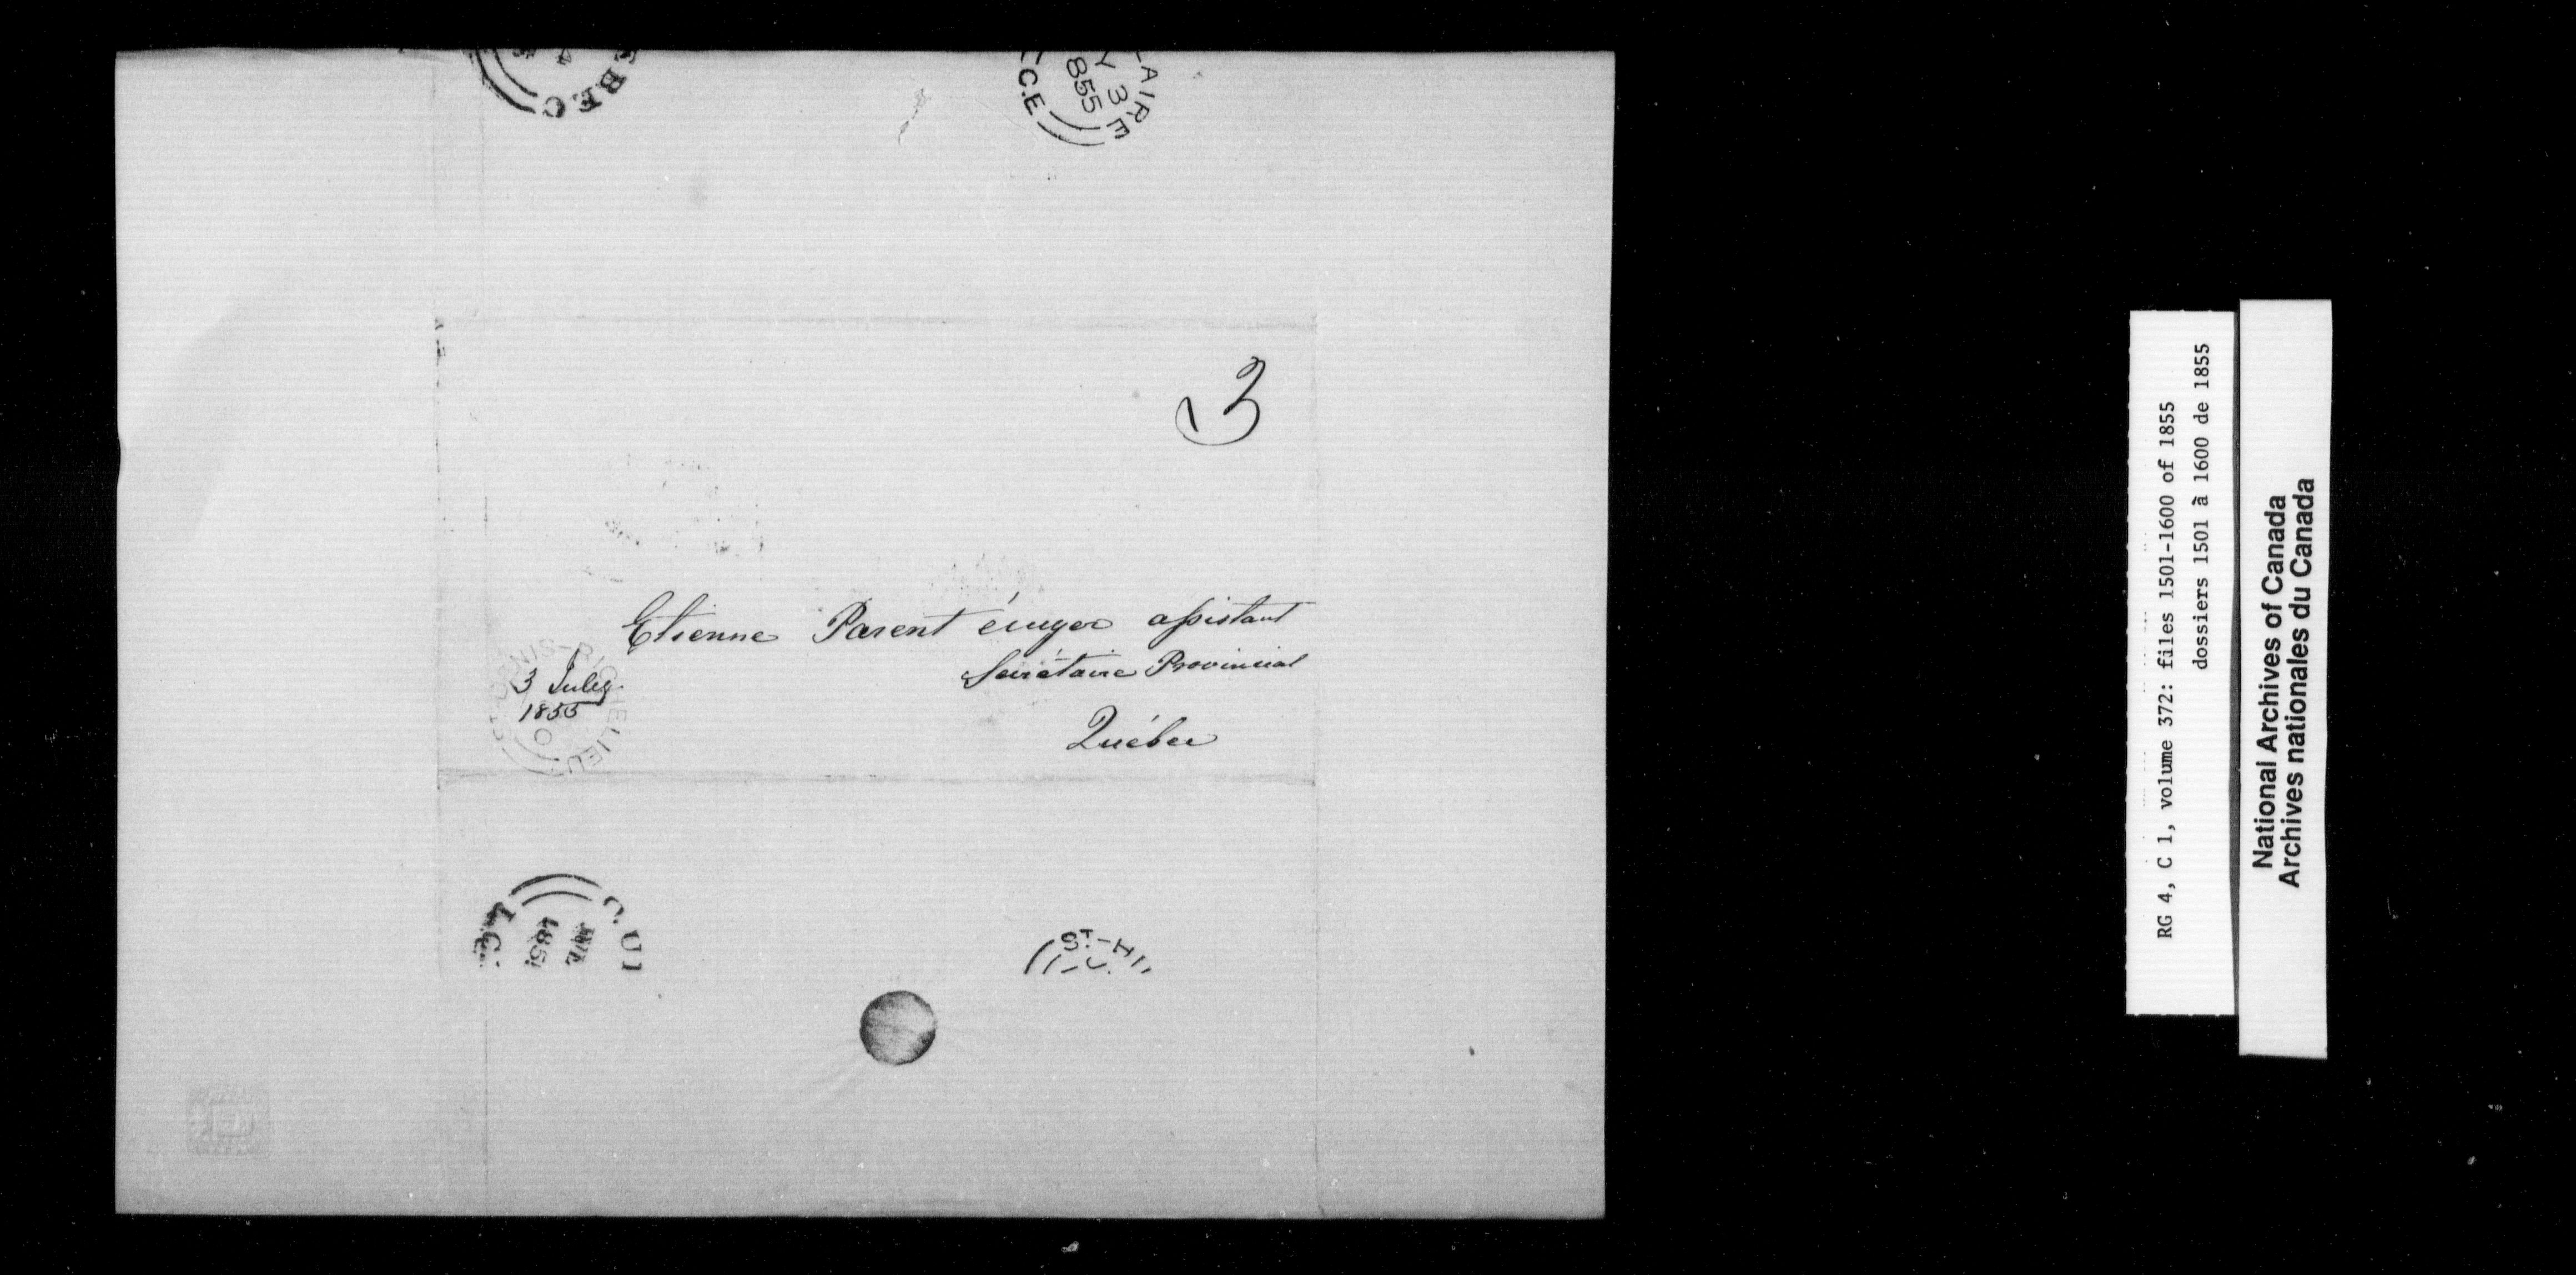 EBEC
LAIRE
Y 3
855
C.E
3
Etienne Parent écuyer assistant
Secrétaire Provincial
Québec
ST DENIS-RICHELIEU
3 July
1855
QUE
185
L.C.
ST-HIL
RG 4, C 1, volume 372: files 1501-1600 of 1855
dossiers 1501 à 1600 de 1855
National Archives of Canada
Archives nationales du Canada